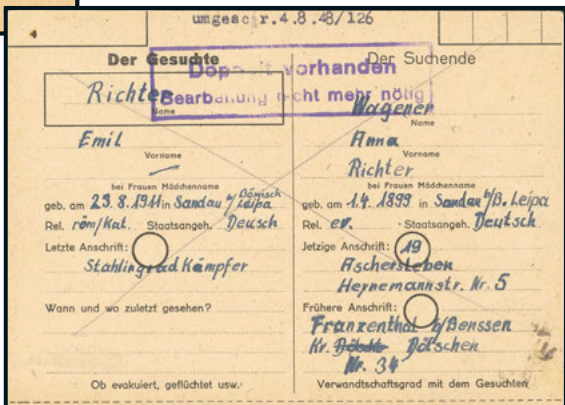 umgeschr.4.8.48/126
Der Gesuchte
Doppelt vorhanden
Bearbeitung nicht mehr nötig
Richter
Name
Emil
Vorname
bei Frauen Mädchenname
geb. am 29.8.1911 in Sandau b/Bömisch Leipa
Rel. röm/Kat. Staatsangeh. Deusch
Letzte Anschrift:
Stahlingrad Kämpfer
Wann und wo zuletzt gesehen?
Ob evakuiert, geflüchtet usw.
Der Suchende
Wagener
Name
Anna
Vorname
Richter
bei Frauen Mädchenname
geb. am 1.4. 1899 in Sandau b/B. Leipa
Rel. ev. Staatsangeh. Deutsch
Jetzige Anschrift: 19
Aschersleben
Heynemannstr. Nr. 5
Frühere Anschrift:
Franzenthal b/Benssen
Kr. Dötschen
Nr. 34
Verwandtschaftsgrad mit dem Gesuchten